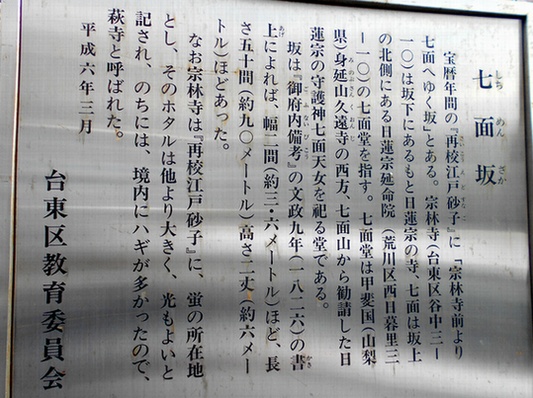 七面坂
しちめんざか
宝暦年間の『再校江戸砂子』に「宗林寺前より
七面へゆく坂」とある。宗林寺(台東区谷中三ー
一〇)は坂下にあるもと日蓮宗の寺、七面は坂上
の北側にある日蓮宗延命院(荒川区西日暮里三
ー一〇)の七面堂を指す。七面堂は甲斐国(山梨
県)身延山久遠寺の西方、七面山から勧請した日
蓮宗の守護神七面天女を祀る堂である。
坂は『御府内備考』の文政九年(一八二六)の書
上によれば、幅二間(約三・六メートル)ほど、長
さ五十間(約九〇メートル)高さ二丈(約六メー
トル)ほどあった。
なお宗林寺は『再校江戸砂子』に、蛍の所在地
とし、そのホタルは他より大きく、光もよいと
記され、のちには、境内にハギが多かったので、
萩寺と呼ばれた。
平成六年三月
台東区教育委員会